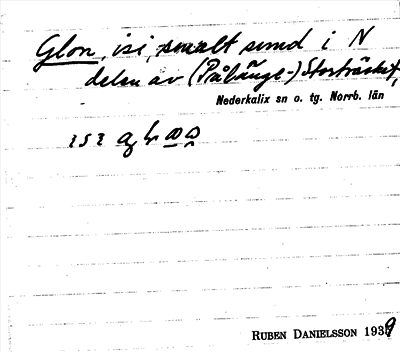 Glon, isi, smalt sund i N
delen av (Påbänge-) Storträsket,
Nederkalix sn o. tg. Norrb. län
RUBEN DANIELSSON 1939